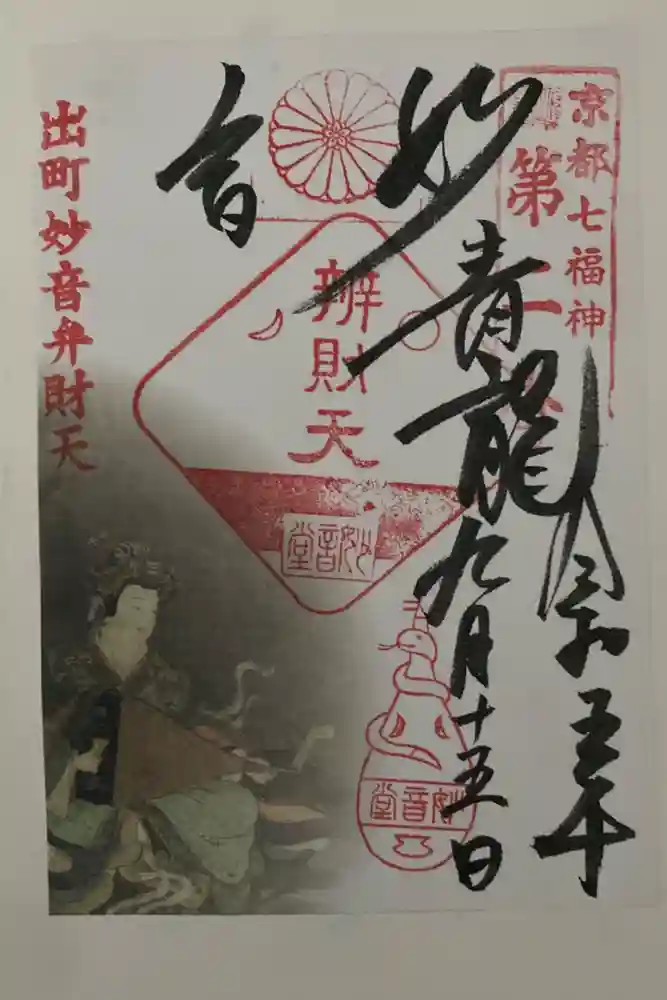 京都七福神
第一
令和五年
青龍
九月十五日
妙
音
辨財天
妙音堂
妙音堂
出町妙音弁財天